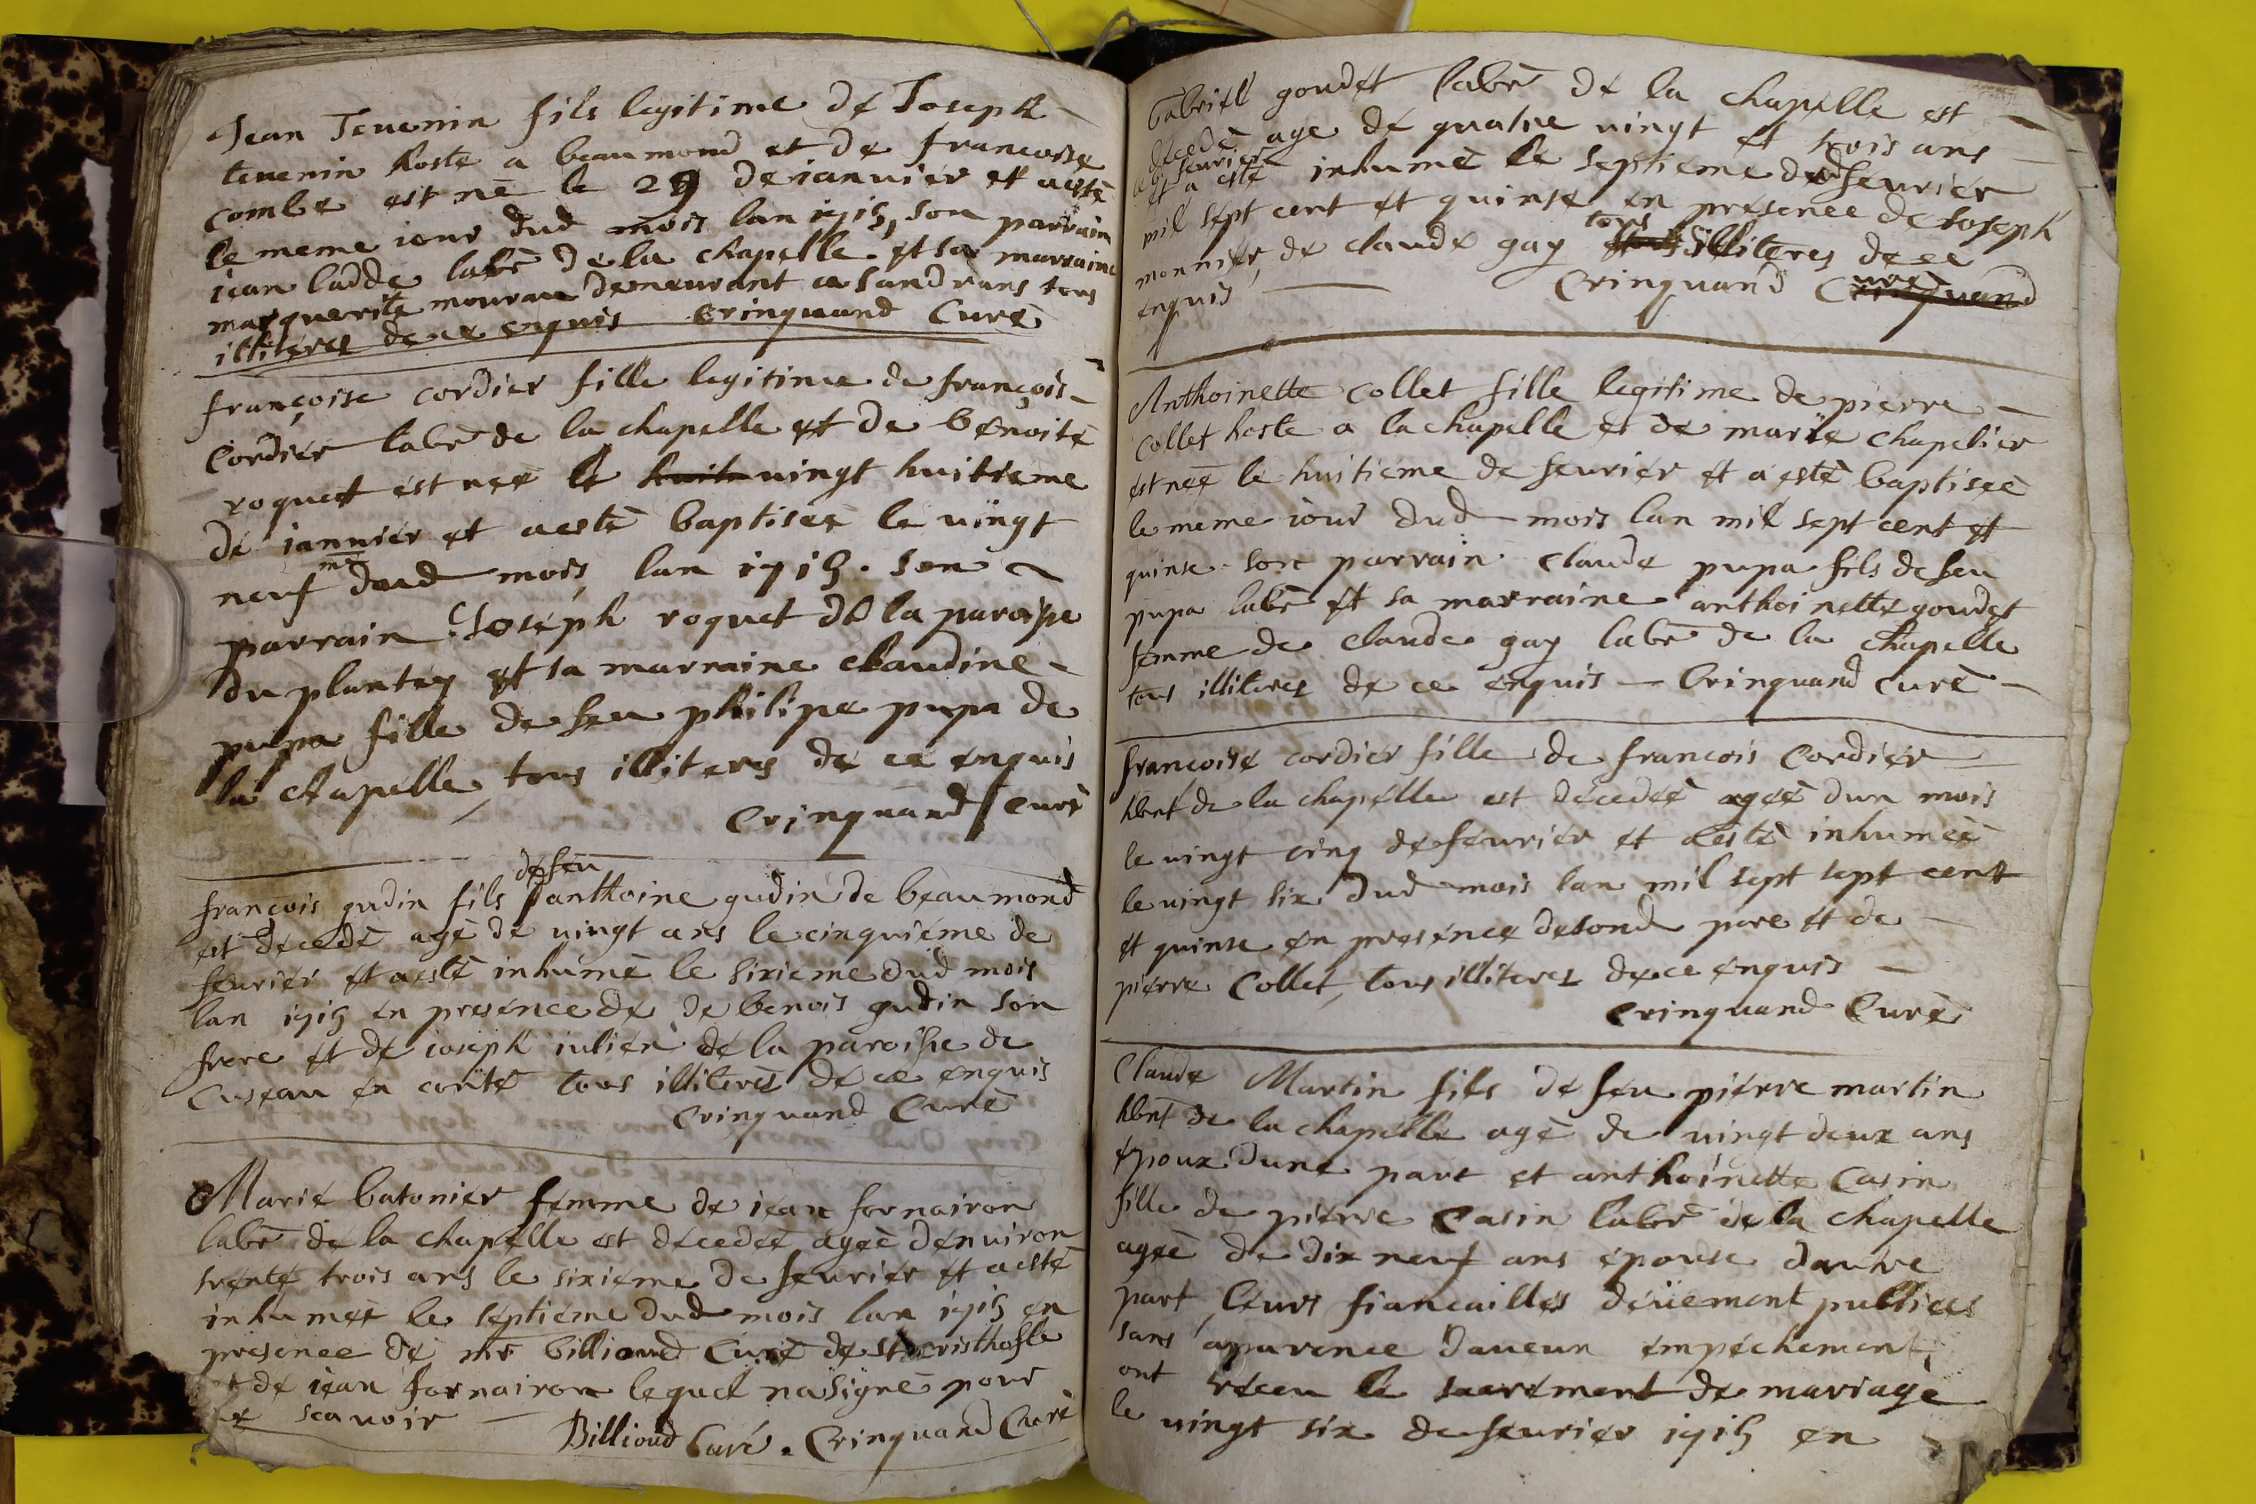 Jean Tevenin fils legitime de Joseph
tevenin hoste a beaumond et de francoise
combe est né le 29 de ianvier et a esté
le meme iour dud mois lan 1715, son parrain
iean ladde labr de la chapelle et sa marraine
marguerite mourau demeurant a sandrans tous
illiteres de ce enquis Crinquand Curé
françoise cordier fille legitime de françois
Cordier labr de la chapelle et de benoite
roquet est nee le huit vingt huitieme
de ianvier et a esté baptisée le vingt
neuf me dud mois lan 1715. son
parrain Joseph roquet de la paroisse
du plantay et sa marraine claudine
pupa fille de feu philipe pupa de
la chapelle, tous illiteres de ce enquis
Crinquand Curé
de feu
françois gudin fils anthoine gudin de beaumond
est décedé agé de vingt ans le cinquiéme de
feurier et a esté inhumé le sixieme dud mois
lan 1715 en presence de de benois gudin son
frere et de ioseph iulien de la paroisse de
Cuseau en conté tous illiteres de ce enquis
Crinquand Curé
Marie batonier femme de iean fornairon
labr de la chapelle est décedée agée denviron
trente trois ans le sixieme de feurier et a esté
inhumée le septieme dud mois lan 1715 en
presence de mr billioud Curé de st cristhofle
et de iean fornairon lequel na signé pour
ne scavoir Billioud Curé. Crinquand Curé
Gabriel goudet labr de la chapelle est
décedé age de quatre vingt et trois ans
le 6 feurier
et a esté inhumé le septieme dud feurier
mil sept cent et quinse en presence de Joseph
monnier, de claude gay tous illiteres de ce
enquis Crinquand Curé
Anthoinette Collet fille legitime de pierre
Collet hoste a la chapelle et de marie chapelier
est née le huitieme de feurier et a esté baptisée
le meme iour dud mois lan mil sept cent et
quinse. son parrain claude pupa fils de feu
pupa labr et sa marraine anthoinette goudet
femme de claude gay labr de la chapelle
tous illiteres de ce enquis Crinquand curé
françoise cordier fille de francois Cordier
hbnt de la chapelle est décedée agée dun mois
le vingt cinq de feurier et a esté inhumée
le vingt six dud mois lan mil sept sept cent
et quinse en presence de sond pere et de
pierre Collet, tous illiteres de ce enquis
Crinquand Curé
Claude Martin fils de feu pierre martin
hbnt de la chapelle agé de vingt deux ans
époux dune part et anthoinette Casin
fille de pierre Casin labr de la chapelle
agée de dix neuf ans épouse dautre
part, leurs fiancailles deüement publiees
sans aparence daucun empéchement,
ont réceu le sacrement de mariage
le vingt six de feurier 1715 en